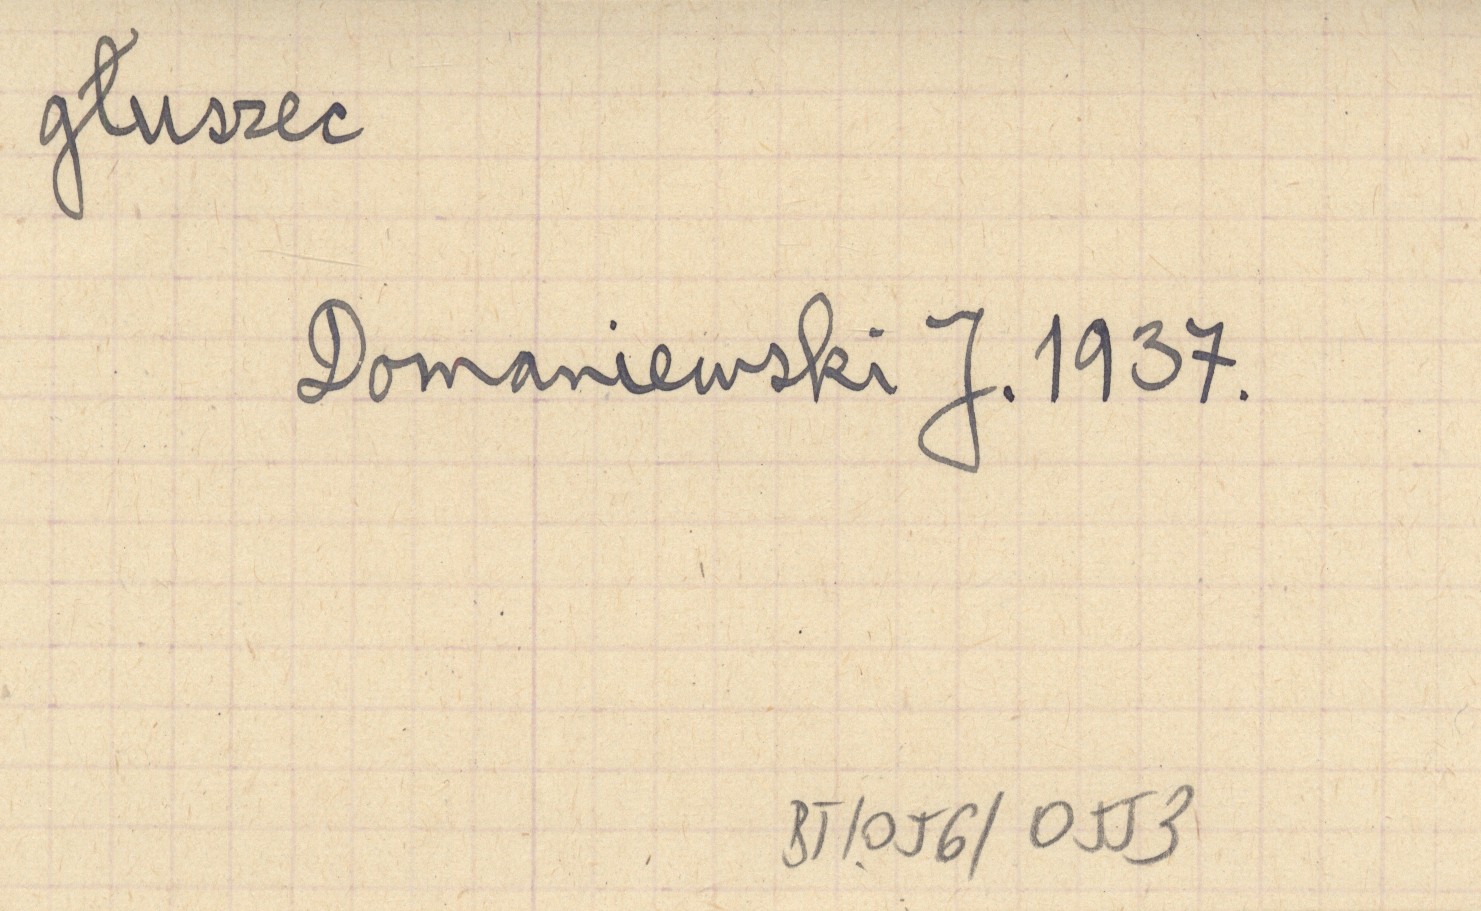 głuszec
Domaniewski J. 1937.
BT/056/0553